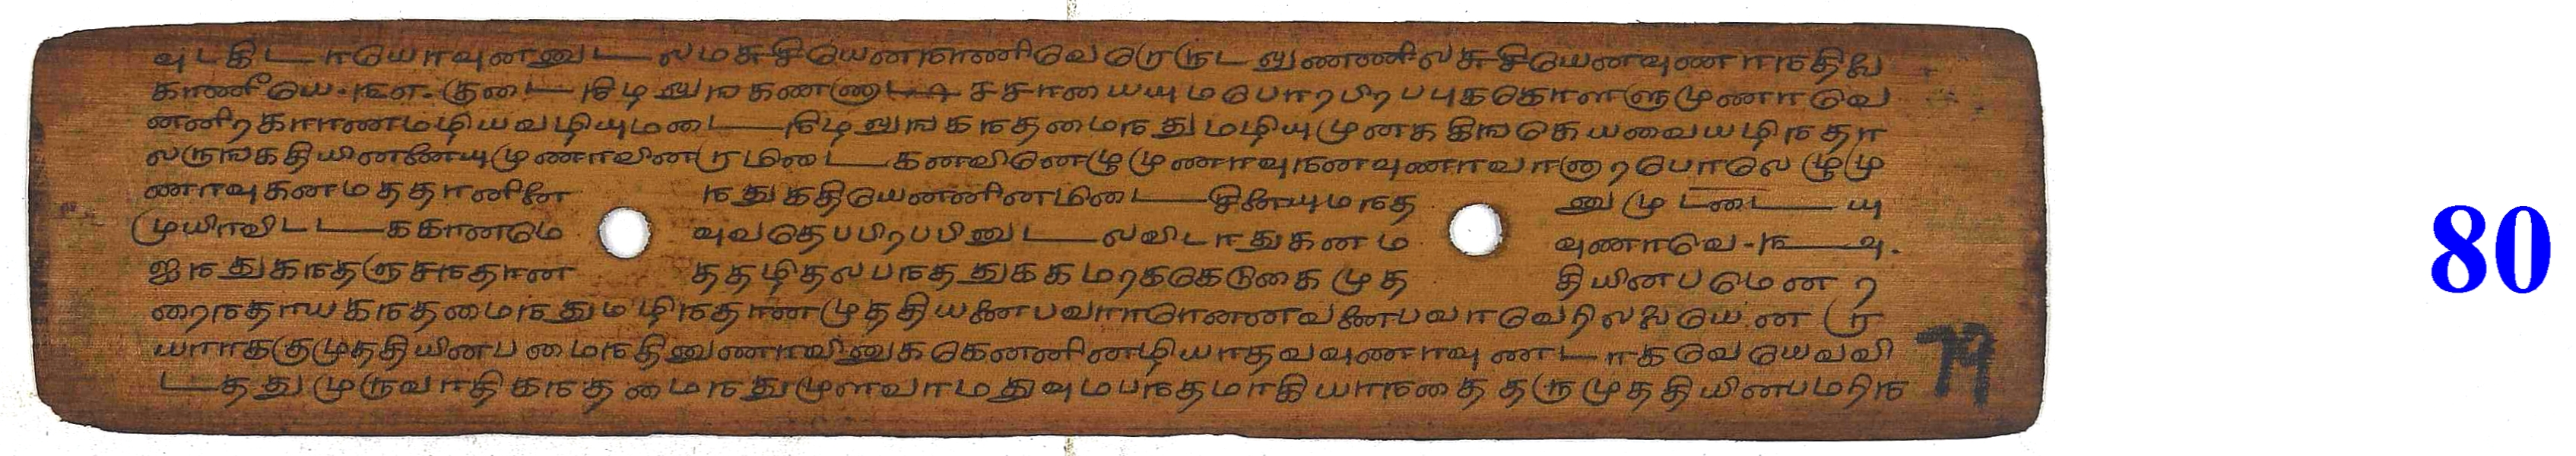 வுடகிடடாயொவுனனுடலமசுசியெனனாணிவெரெருடலுணணிலசுசியெனவுணாநதிலெ
காணீயெ. ந௭. குடைநிடிலுஙகணணுடசசாயையுமபொறபிறபபுககொளளுமுணாவெ
னனிறகாரணமழியவழியுமடைநிழலுஙகநதமைநதுமழியுமுனககிஙகெயவையழிநதா
லருஙகதியினணேயுமுணாவினரமிடைகனவினெழுமுணாவுநனவுணாவானாறபொலெழுமு
ணாவுகனமததானினே நதுகதியெனனினமிடைசினேயுமநத னுமுடடையு
முயிாவிடடககானமே வுவதெபபிறபபினுடலவிடாதுகனம வுணாவெ.நவு.
ஐநதுகநதருசநதான ததழிதலபநததுககமறககெடுகைமுத தியினபமெனற
ரைநதாயகநதமைநதுமழிநதானமுததியணேபவாராெனனவணேபவாவெரிலலையெனர
யாாககுமுததியினபமைநதினுணாவினுககெனனினழியாதவவுணாவுணடாகவெயெவவி
டததுமுருவாதிகநதமைநதுமுளவாமதுவுமபநதமாகியாநதைதருமுததியினபமரிந
79
80